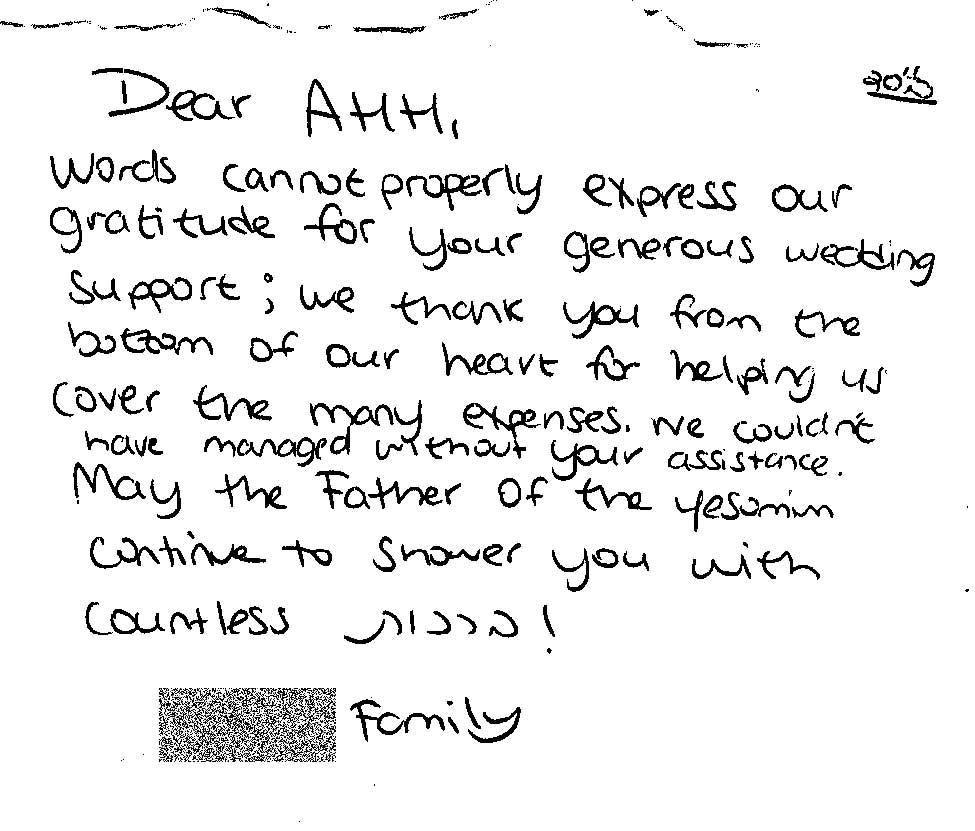 בס"ד
Dear AHH,
Words cannot properly express our
gratitude for your generous wedding
support; we thank you from the
bottom of our heart for helping us
cover the many expenses. We couldn't
have managed without your assistance.
May the Father of the yesomim
continue to shower you with
countless ברכות!
Family